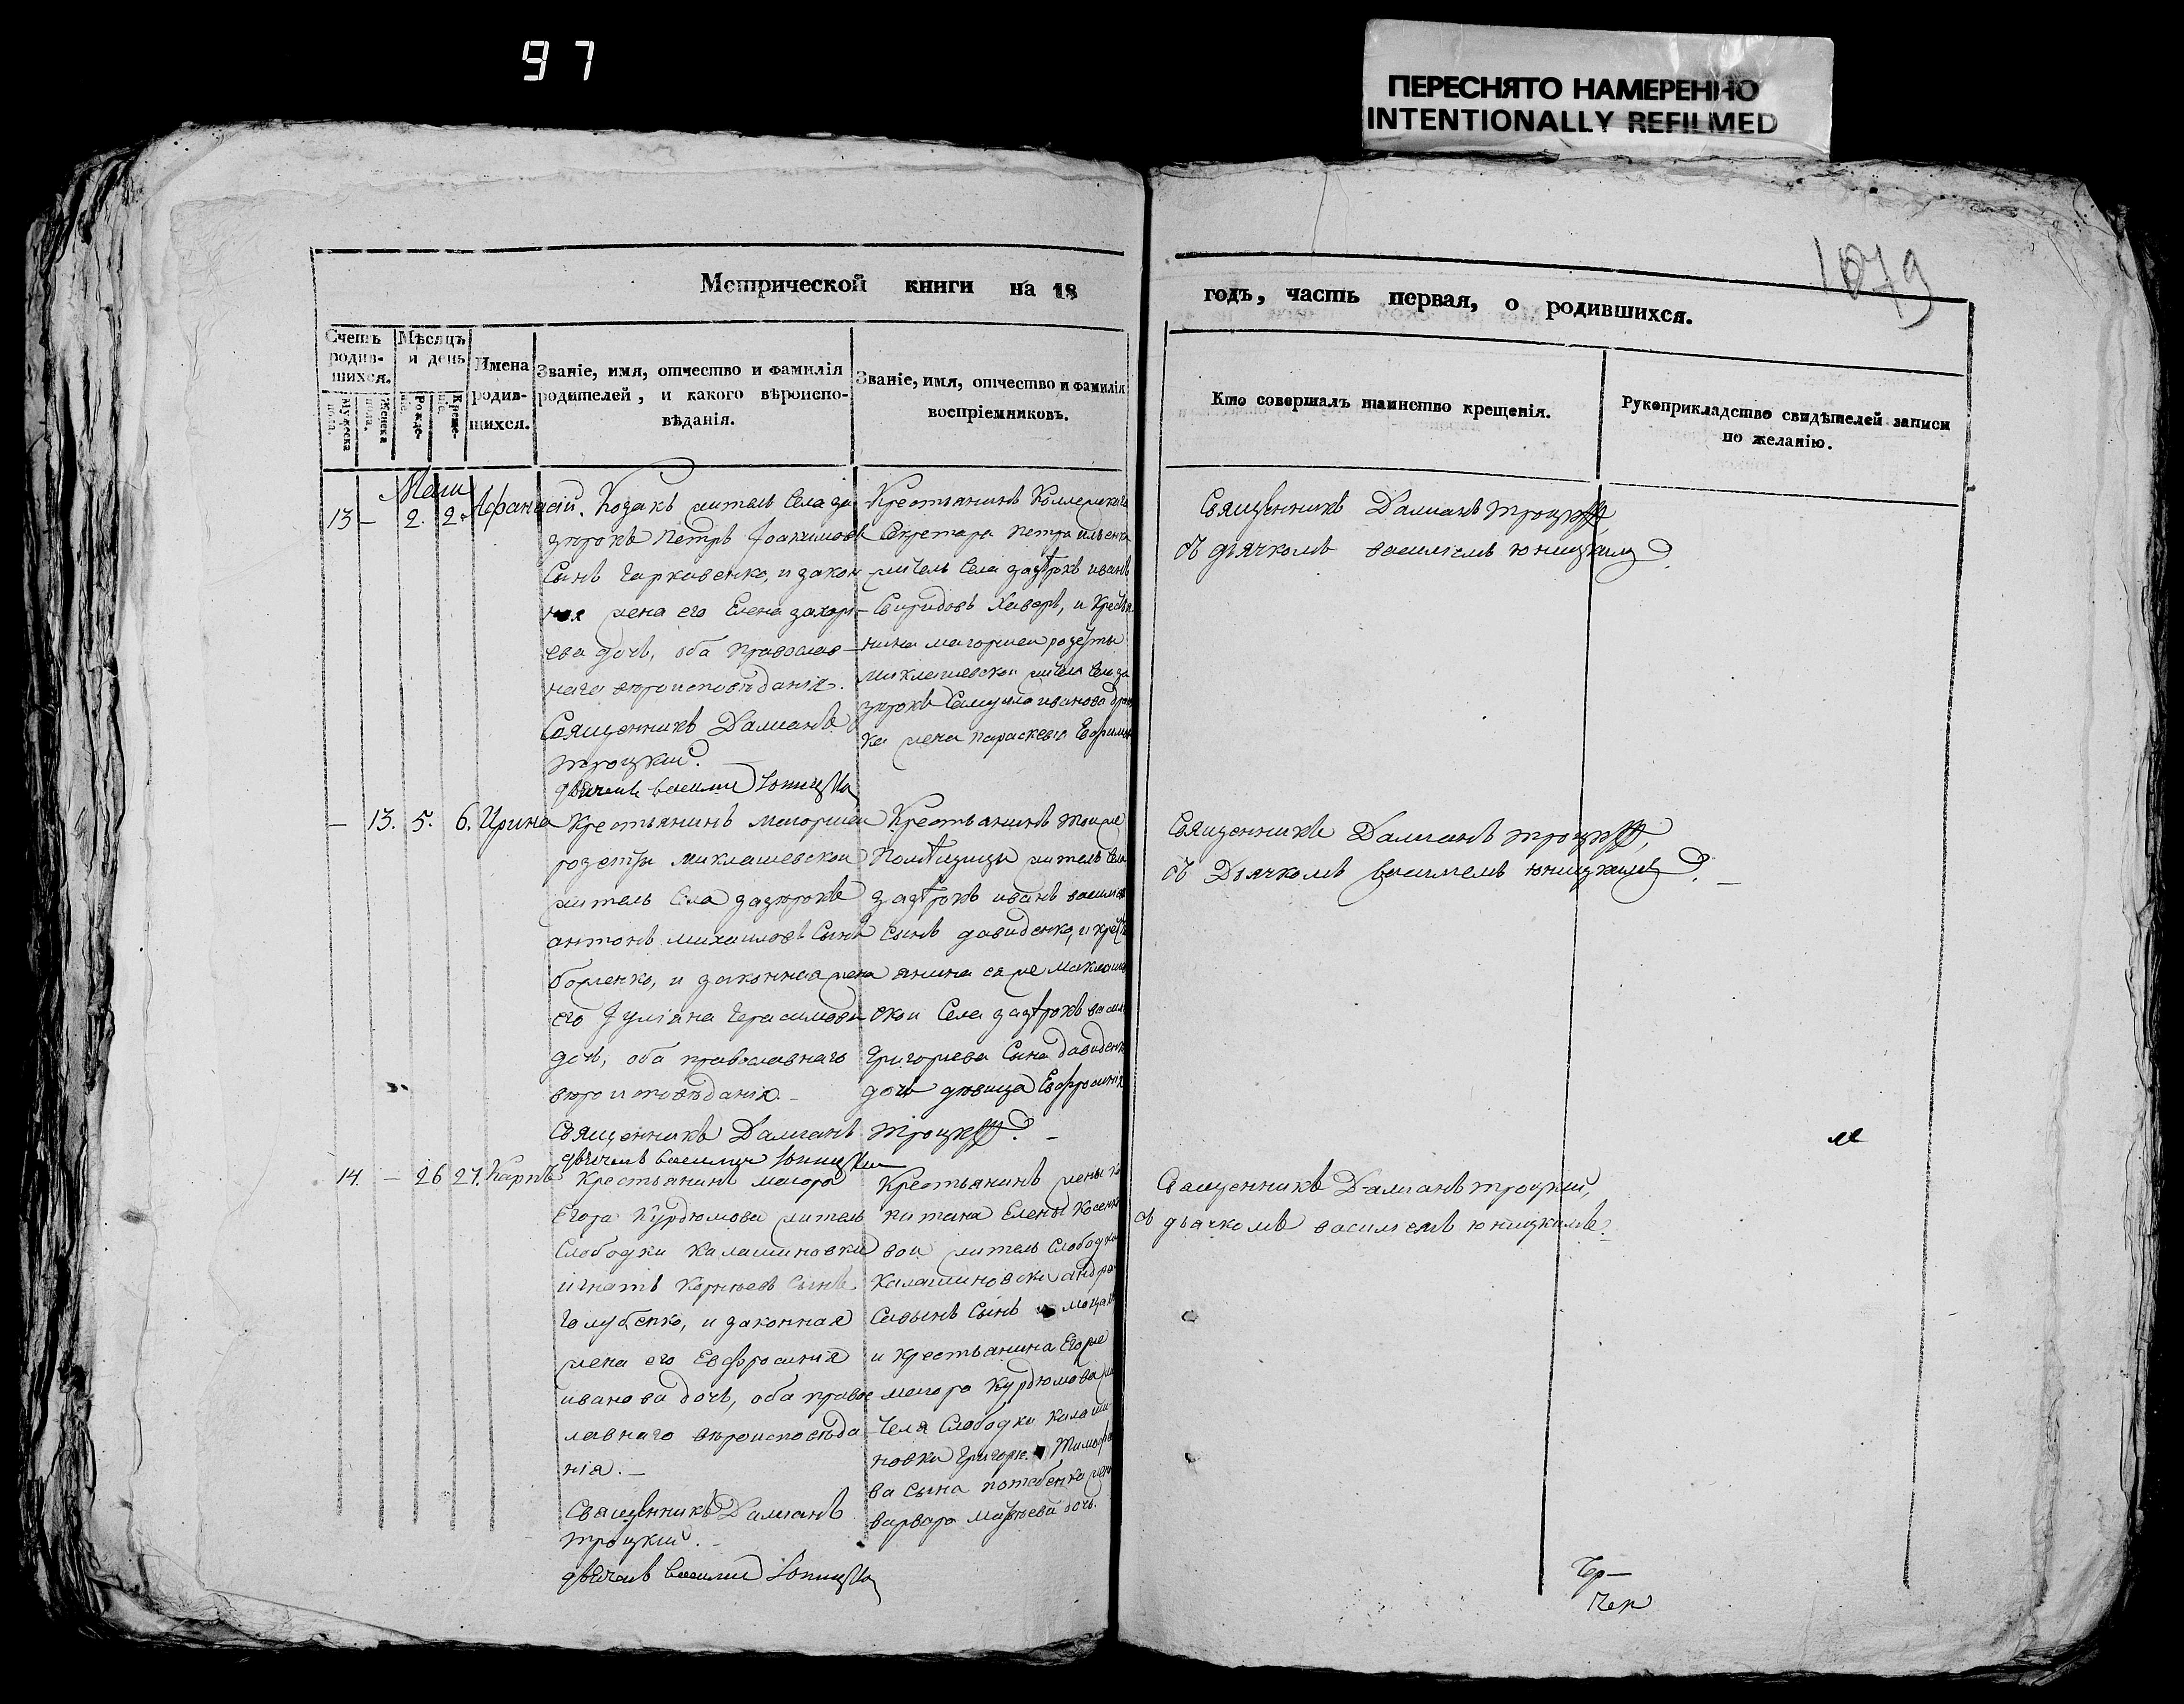 97
ПЕРЕСНЯТО НАМЕРЕННО
INTENTIONALLY REFILMED
1079
Метрической книги на 18
годъ, часть первая, о родившихся.
Счетъ родив-шихся.
Мужеска пола.
Женска пола.
Мѣсяцъ и день
Рожде-нія.
Креще-нія.
Имена родив-шихся.
Званіе, имя, отчество и фамилія
родителей, и какого вѣроиспо-
вѣданія.
Званіе, имя, отчество и фамилія
воспріемниковъ.
Кто совершалъ таинство крещенія.
Рукоприкладство свидѣтелей записи
по желанію.
Маіи
13 — 2. 2. Афанасій.
Козакъ житель Села за
зѣрокъ Петръ Іоакимовъ
Сынъ Гаркавенко, и закон
ная жена его Елена захарі
ева дочь, оба православ
наго вѣроисповѣданія.
Священникъ Даміанъ
троцкій.
дьячекъ василій Юницкій
Крестьянинъ Коллежскаго
Секретара Петра
житель Села зазѣрокъ иванъ
Свиридовъ, и Крестья
нина маіорши розетты
миклашевской жителя Села за
зѣрокъ Самуила иванова
жена параскевія
Священникъ Даміанъ троцкій,
съ дьячкомъ василіемъ юницкимъ.
— 13. 5. 6. Ирина
Крестьянинъ маіорши
розетты миклашевской
житель Села зазѣрокъ
антонъ михаиловъ Сынъ
и законная жена
его Іуліана Герасимова
дочь, оба православнаго
вѣроисповѣданія.
Священникъ Даміанъ троцкій.
дьячекъ василій Юницкій
Крестьянинъ тойже
Помѣщицы житель Села
зазѣрокъ иванъ василіев
Сынъ давиденко, и кресть
янина ея же миклашев
ской Села зазѣрокъ васил
Григорьева Сына давиденка
дочь дѣвица Евфросинія
Священникъ Даміанъ троцкій,
съ Дьячкомъ василіемъ юницкимъ.
14. — 26 27. Карпъ
Крестьянинъ маіора
Егора Курдюмова житель
Слободки Калашиновки
игнатъ Корнѣевъ Сынъ
Голубенко, и законная
жена его Евфросинія
иванова дочь, оба правос
лавнаго вѣроисповѣда
нія.
Священникъ Даміанъ
троцкій.
дьячекъ василій Юницкій
Крестьянинъ жены ка
питана Елены Косенко
вой житель Слободки
Калашиновки андрей
Савынъ Сынъ
и Крестьянина Его же
маіора Курдюмова жи
теля Слободки Калаши
новки Григорія Тимофе
ва Сына жена
варвара дочь.
Священникъ Даміанъ троцкій,
съ дьячкомъ василіемъ юницкимъ.